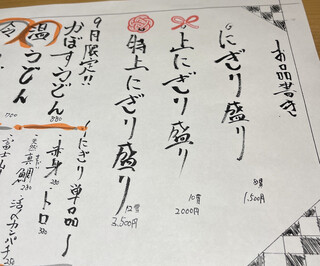 お品書き
にぎり盛り
8貫
1.500円
上にぎり盛り
10貫
2000円
特上にぎり盛り
12貫
3.500円
〜にぎり単品〜
・赤身
・トロ
・真鯛
・活〆カンパチ
9月限定!!
かぼすうどん
880
温うどん